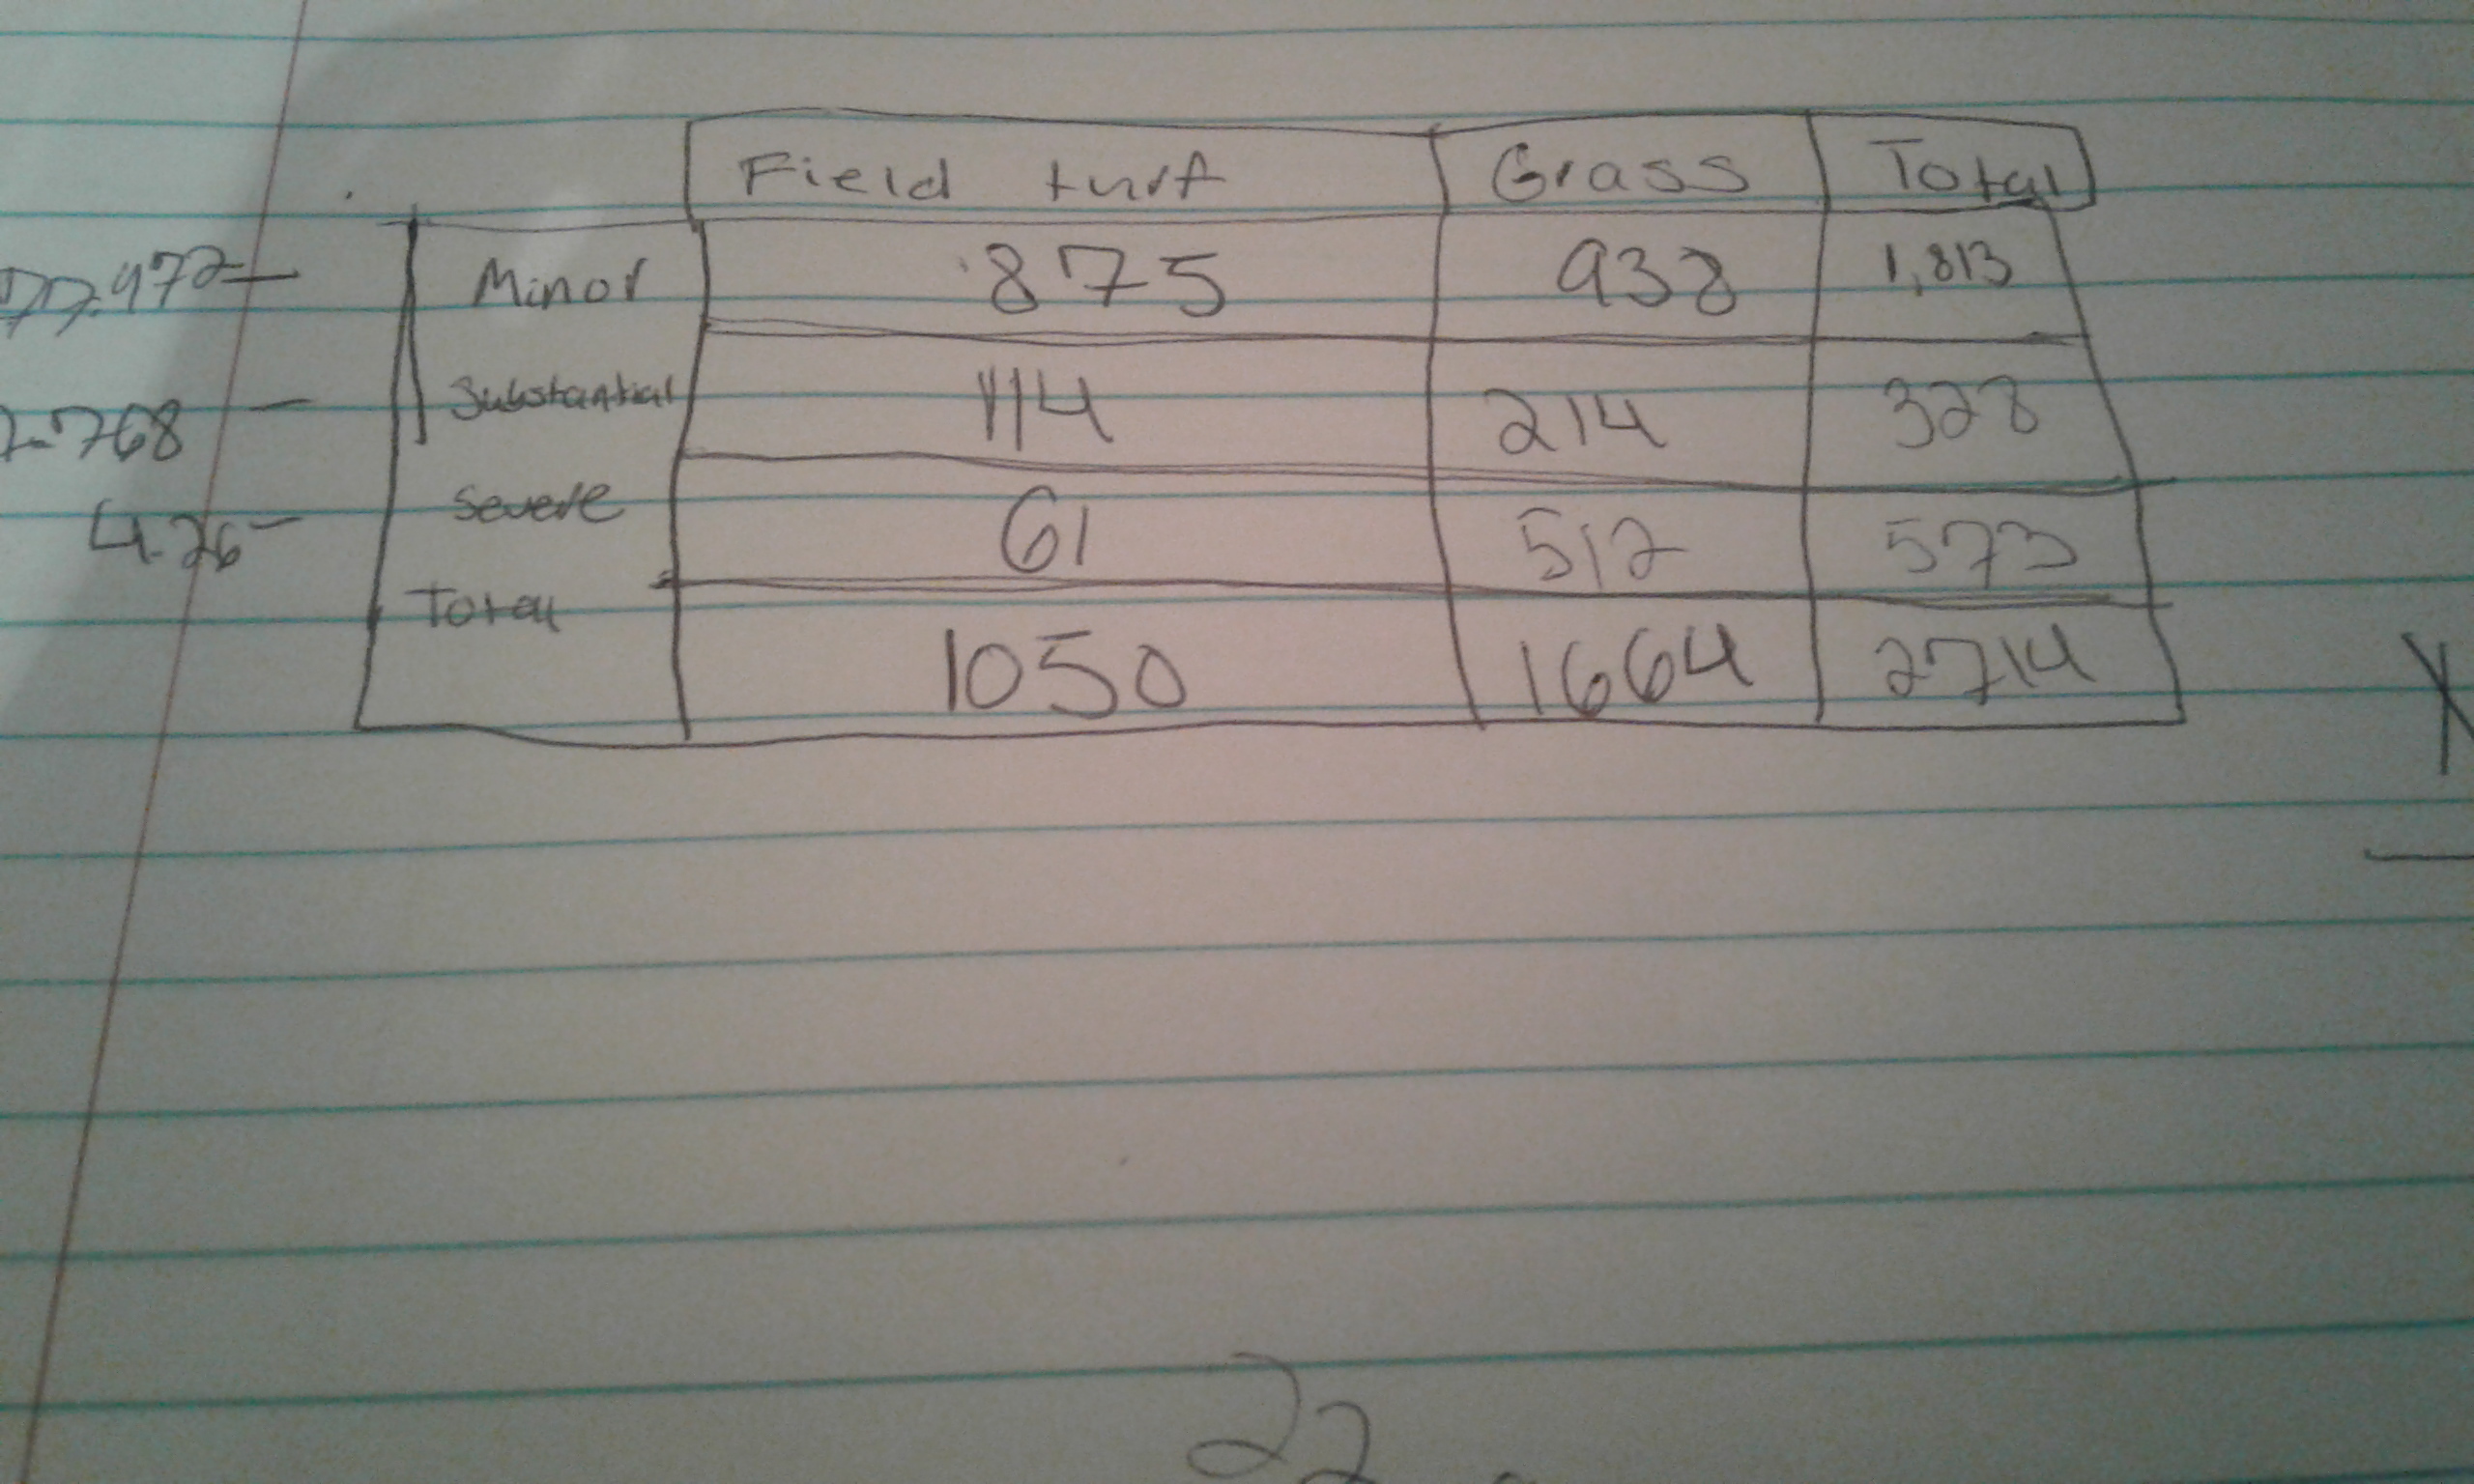 Field turf Grass Total
77.972 — Minor 875 938 1,813
2.768 — Substantial 114 214 328
4.26 — Severe 61 512 573
Total
1050 1664 2714
22